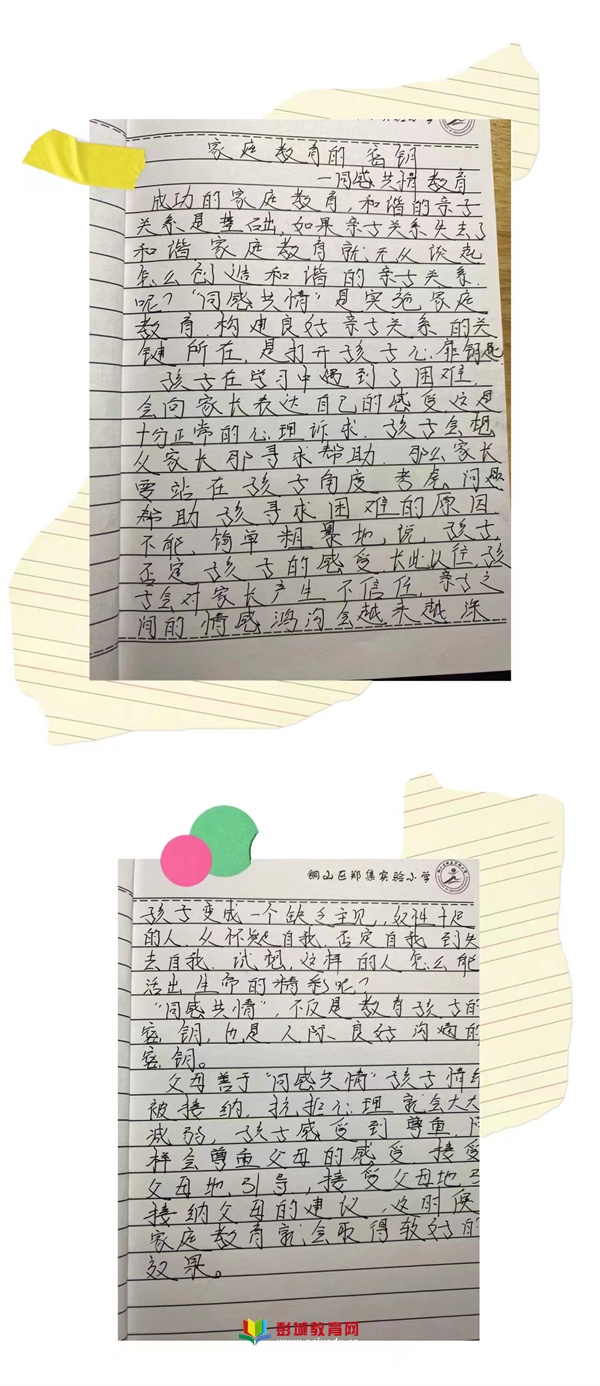 家庭教育的密钥
—同感共情教育
成功的家庭教育，和谐的亲子
关系是基础，如果亲子关系失去了
和谐家庭教育就无从谈起
怎么创造和谐的亲子关系
呢？"同感共情"是实施家庭
教育构建良好亲子关系的关
键所在，是打开孩子心扉钥匙
孩子在学习中遇到了困难，
会向家长表达自己的感受这是
十分正常的心理诉求．孩子会想
从家长那寻求帮助．那么家长
要站在孩子角度考虑问题
帮助孩寻求困难的原因
不能，简单粗暴地，说，孩子，
否定孩子的感受长此以往，孩
子会对家长产生不信任，亲子之
间的情感鸿沟会越来越深
铜山区郑集实验小学
孩子变成一个缺乏主见，奴性十足
的人．从怀疑自我，否定自我到失
去自我．试想，这样的人怎么能
活出生命的精彩呢？
"同感共情"，不仅是教育孩子的
密钥，也是人际、良好沟通的
密钥。
父母善于"同感共情"孩子情绪
被接纳，抗拒心理就会大大
减弱，孩子感受到尊重同
样会尊重父母的感受接受
父母地引导，接受父母地引
接纳父母的建议，这时候
家庭教育就会取得较好的
效果。
彭城教育网